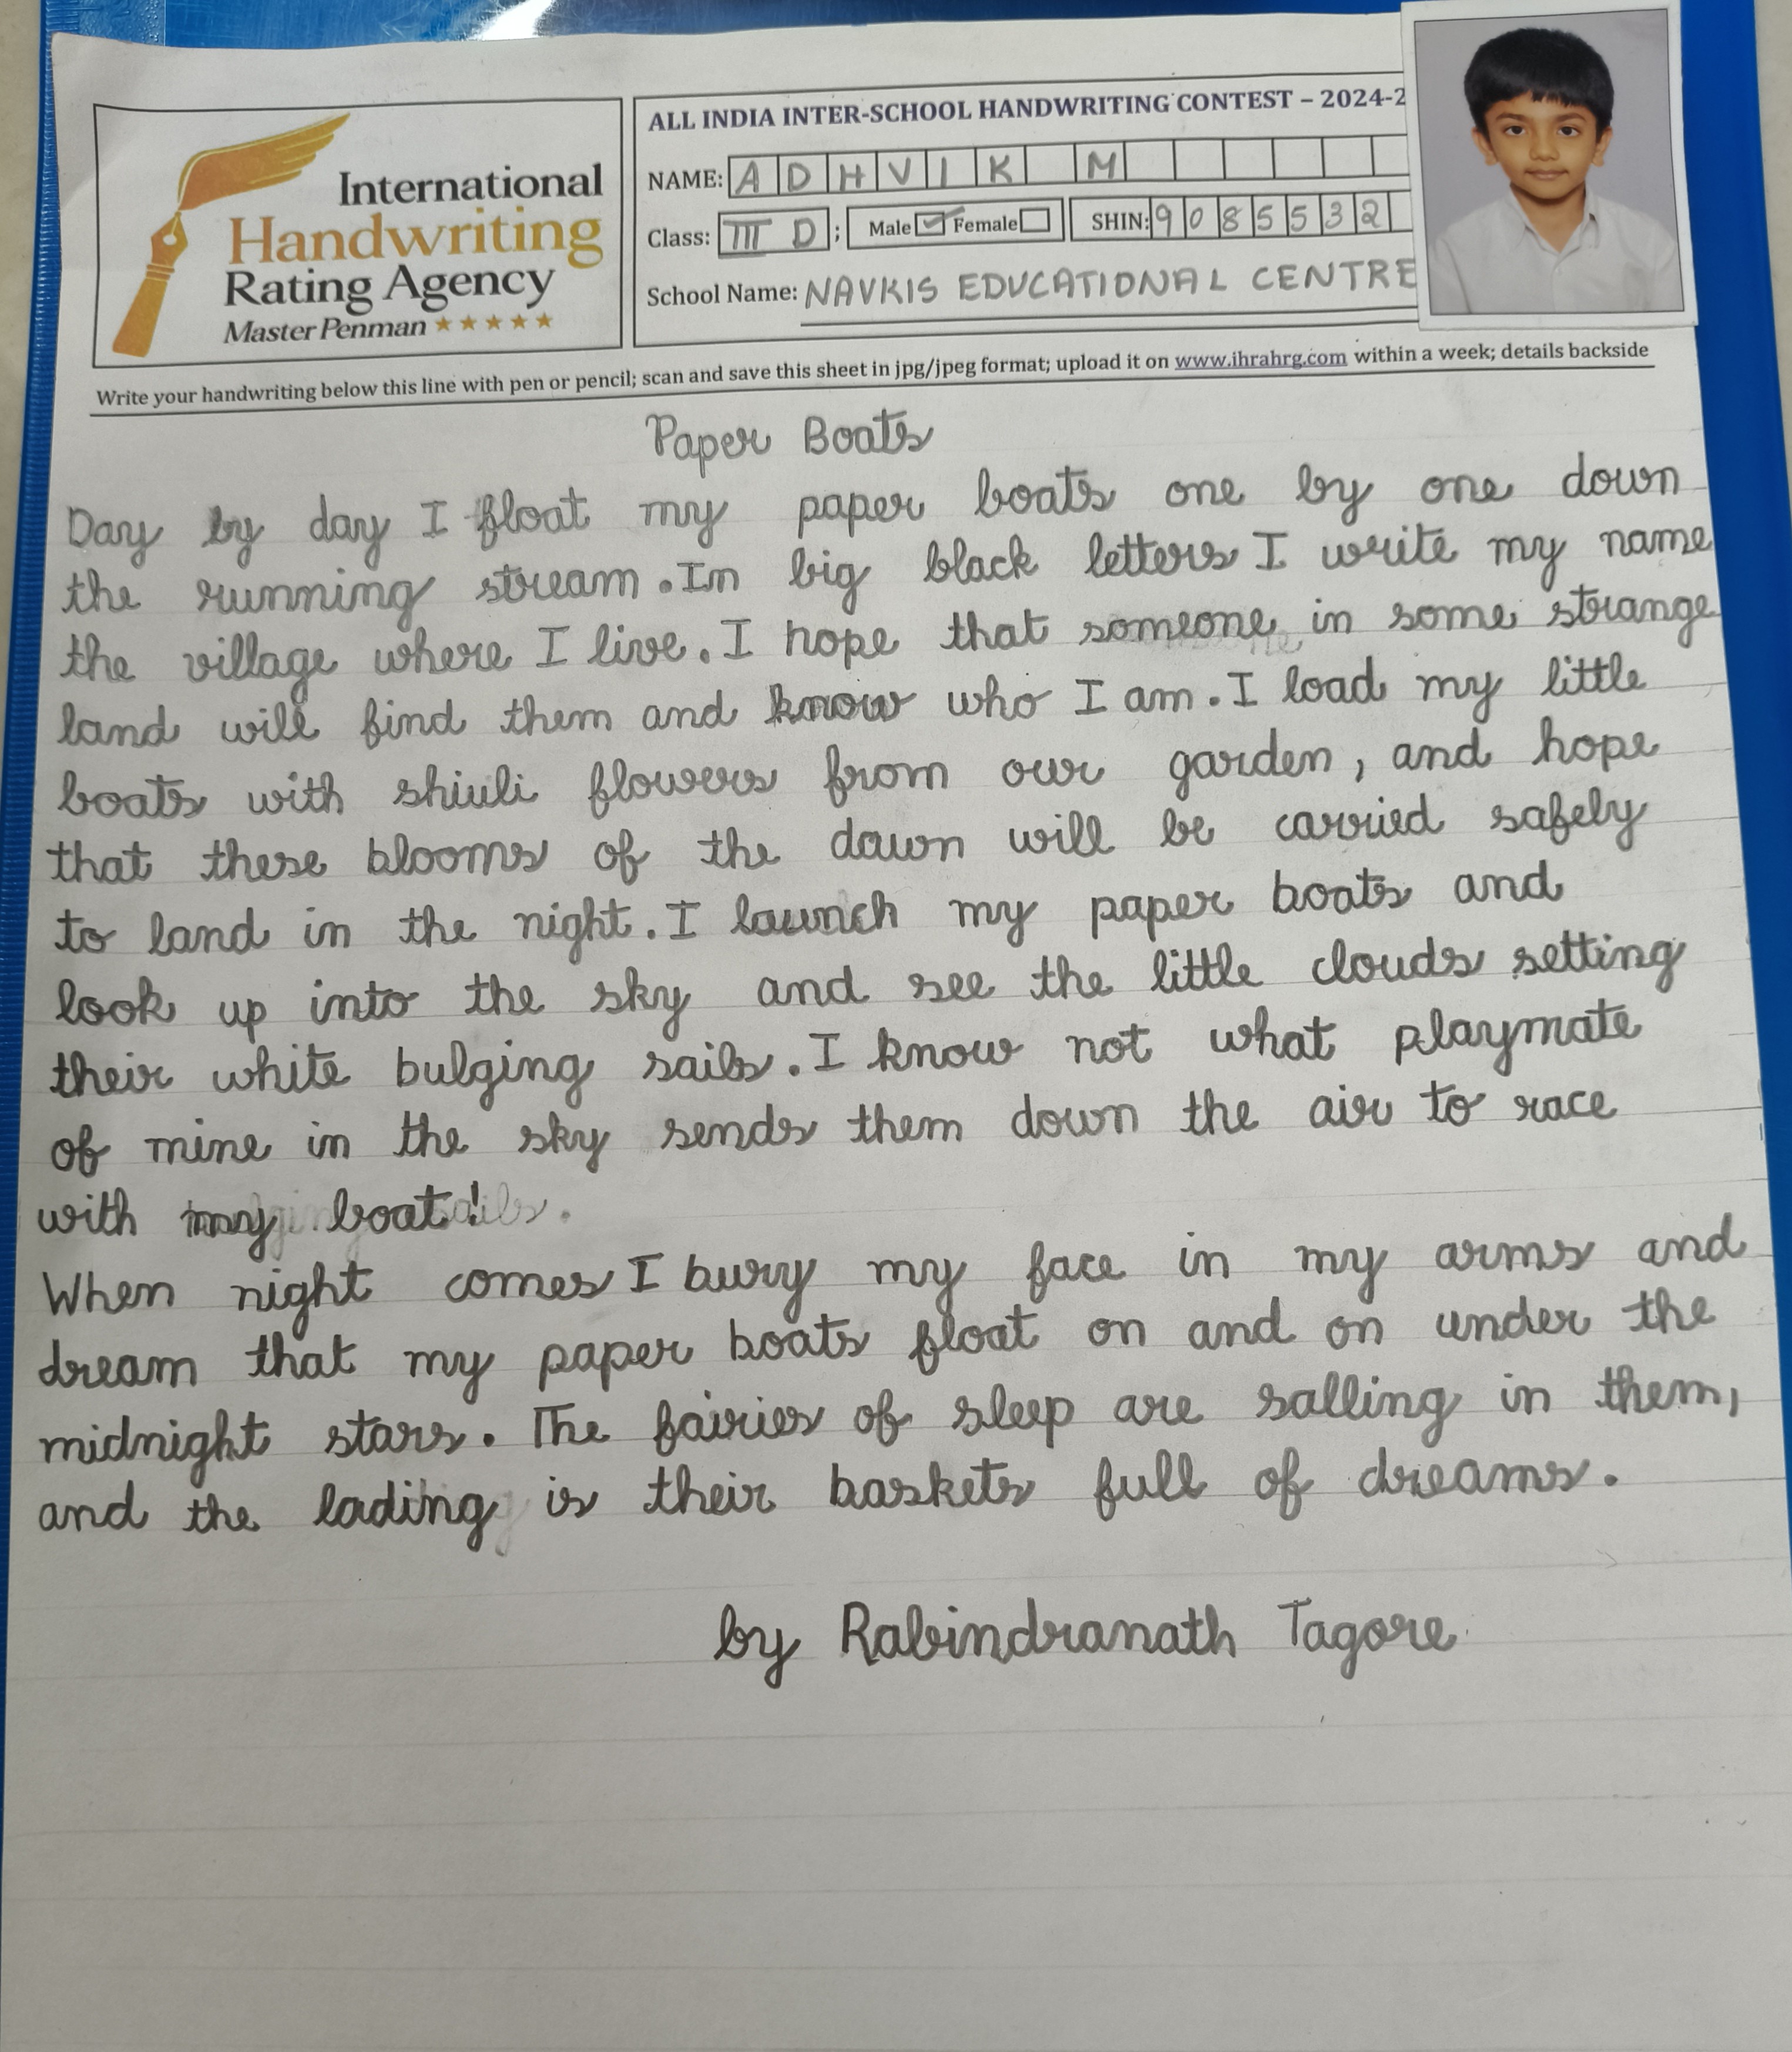 International
Handwriting
Rating Agency
Master Penman
ALL INDIA INTER-SCHOOL HANDWRITING CONTEST – 2024-2
NAME: ADHVIK M
Class: III D ; Male ✓ Female SHIN: 9085532
School Name: NAVKIS EDUCATIONAL CENTRE
Write your handwriting below this line with pen or pencil; scan and save this sheet in jpg/jpeg format; upload it on www.ihrahrg.com within a week; details backside
Paper Boats
Day by day I float my paper boats one by one down
the running stream. In big black letters I write my name
the village where I live. I hope that someone in some strange
land will find them and know who I am. I load my little
boats with shiuli flowers from our garden, and hope
that these blooms of the dawn will be carried safely
to land in the night. I launch my paper boats and
look up into the sky and see the little clouds setting
their white bulging sails. I know not what playmate
of mine in the sky sends them down the air to race
with my boat!
When night comes I bury my face in my arms and
dream that my paper boats float on and on under the
midnight stars. The fairies of sleep are salling in them,
and the lading is their baskets full of dreams.
by Rabindranath Tagore